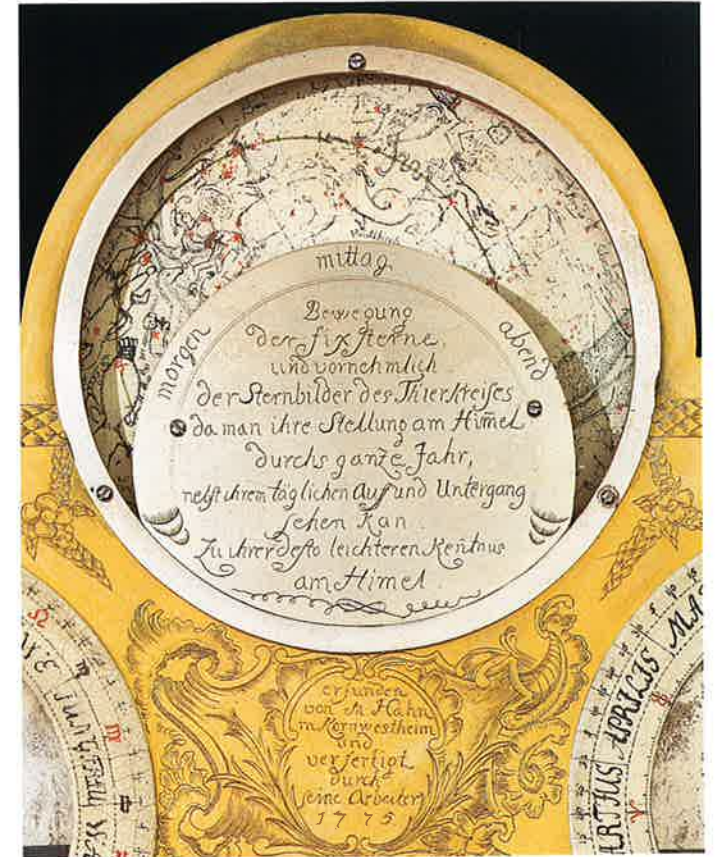 mittag
morgen
abend
Bewegung
der fixsterne,
und vornehmlich
der Sternbilder des Thierkreises
da man ihre Stellung am Himel
durchs ganze Jahr,
nebst ihrem täglichen Auf und Untergang
sehen kan.
Zu ihrer desto leichteren Kentnus
am Himel.
erfunden
von M Hahn
in Kornwestheim
und
verfertigt
durch
seine Arbeiter
1775
ARTIUS APRILIS MA